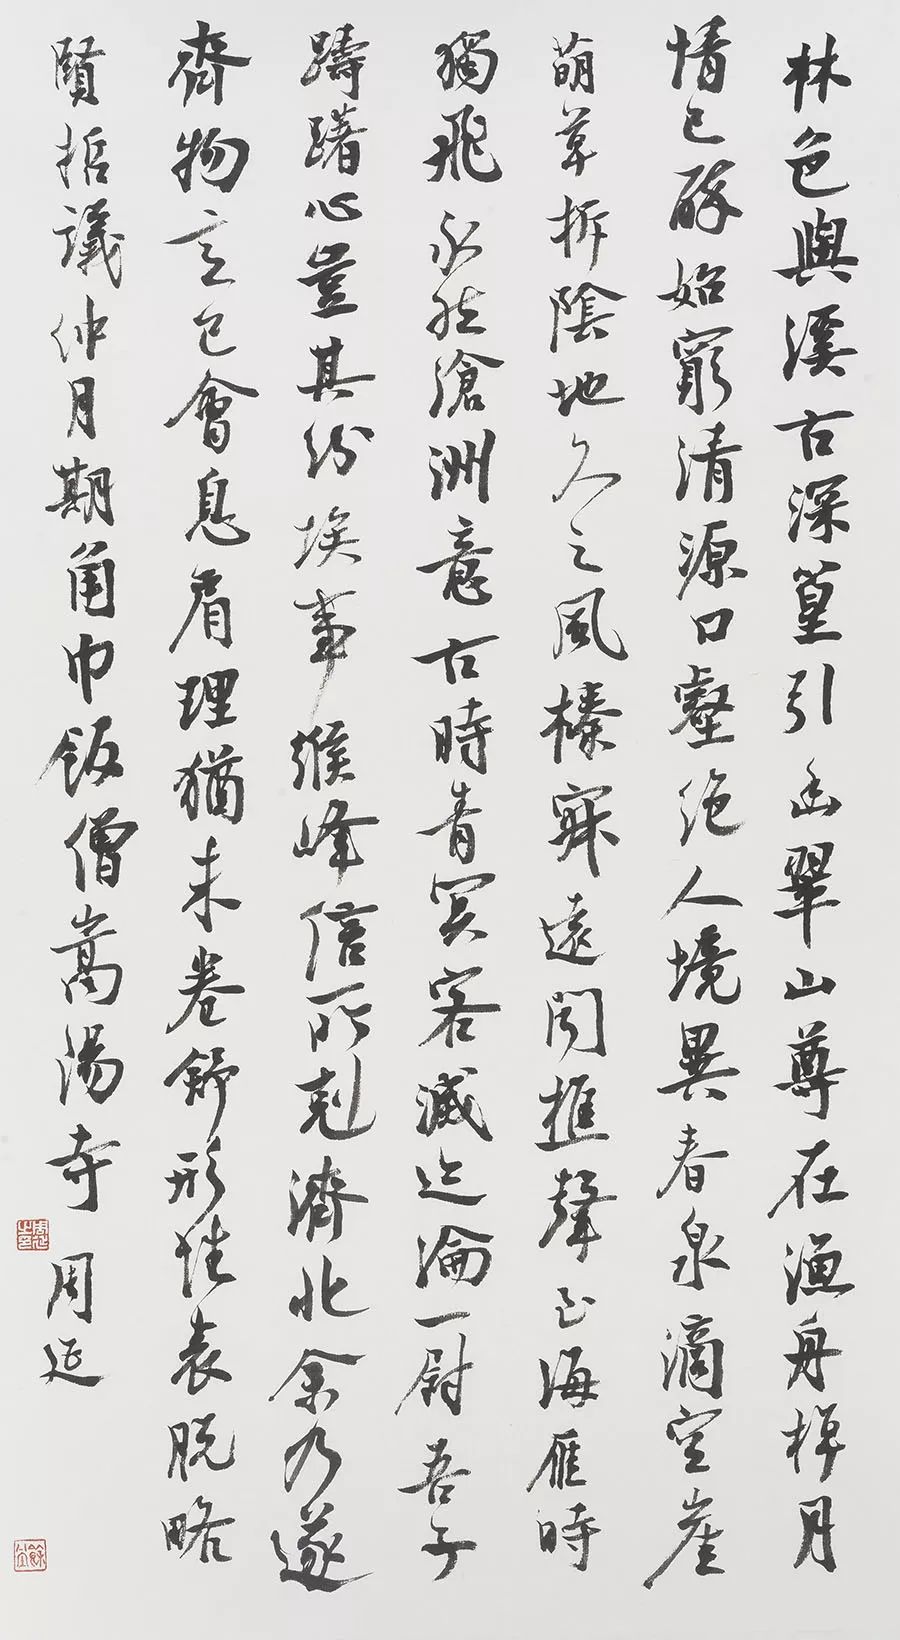 林色與溪古深篁引幽翠山尊在漁舟棹月
情已醉始窮清源口壑絕人境異春泉滴空崖
萌草拆陰地久之風榛寂遠聞樵聲至海雁時
獨飛永然滄洲意古時青冥客滅迹淪一尉吾子
躊躇心豈其紛埃事緱峰信所剋濟北余乃遂
齊物言已會息肩理猶未卷舒形性表脫略
賢哲議仲月期角巾飯僧嵩湯寺 周延